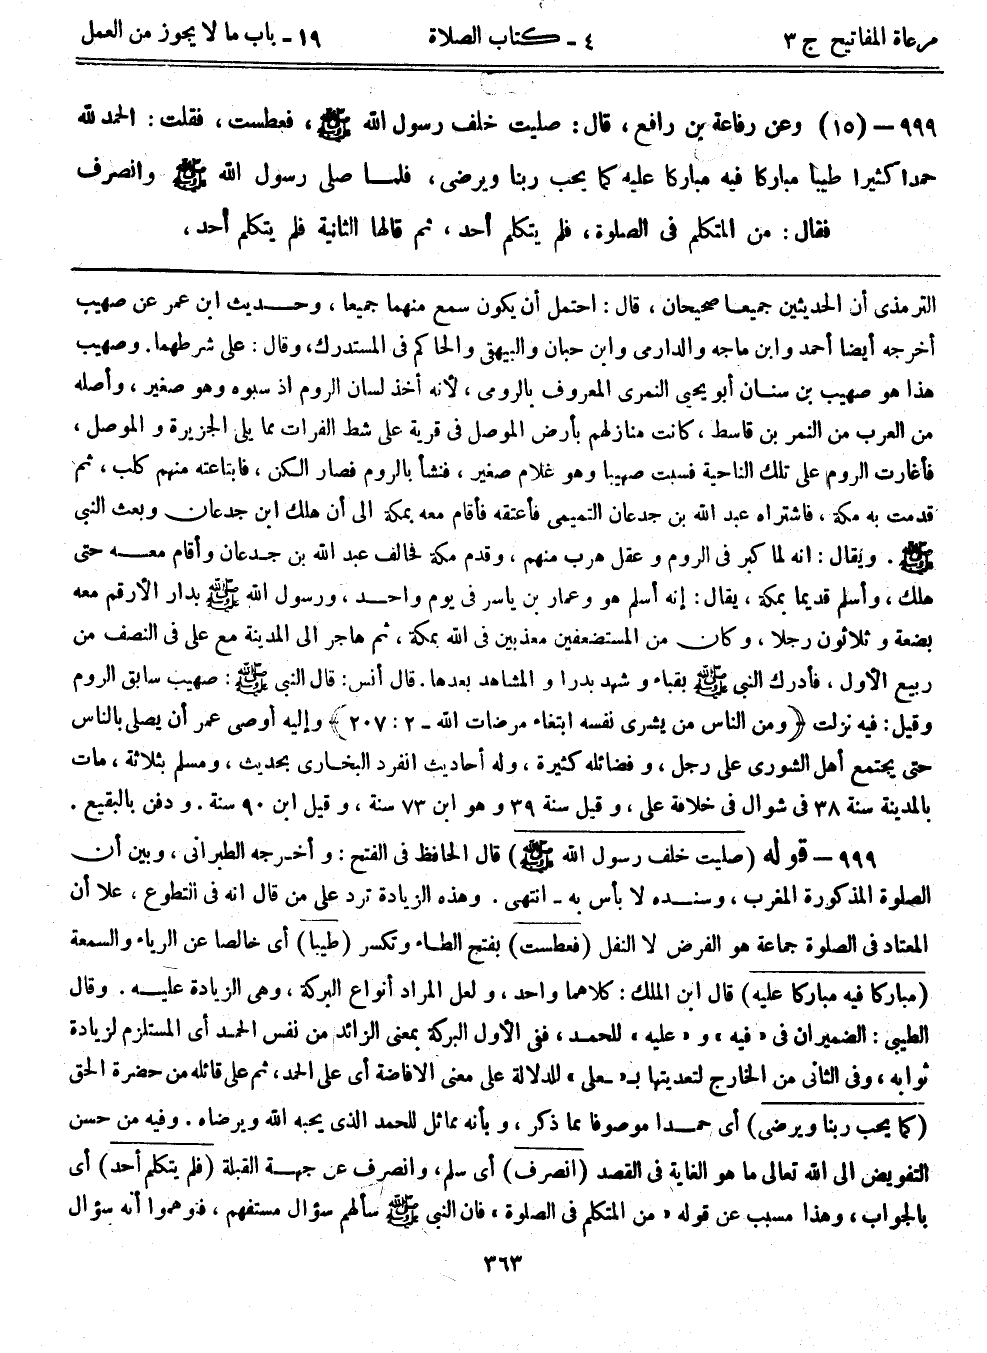 مرعاة المفاتيح ج ٣
٤ - كتاب الصلاة
١٩ - باب ما لا يجوز من العمل
٩٩٩ – (١٥) وعن رفاعة بن رافع، قال: صليت خلف رسول الله ﷺ، فعطست، فقلت: الحمد لله
حمدا كثيرا طيبا مباركا فيه مباركا عليه كما يحب ربنا ويرضى، فلما صلى رسول الله ﷺ وانصرف
فقال: من المتكلم فى الصلوة، فلم يتكلم أحد، ثم قالها الثانية فلم يتكلم أحد،
الترمذى أن الحديثين جميعا صحيحان، قال: احتمل أن يكون سمع منهما جميعا، وحديث ابن عمر عن صهيب
أخرجه أيضا أحمد وابن ماجه والدارمى وابن حبان والبيهقى والحاكم فى المستدرك، وقال: على شرطهما. وصهيب
هذا هو صهيب بن سنان أبو يحيى النمرى المعروف بالرومى، لأنه أخذ لسان الروم اذ سبوه وهو صغير، وأصله
من العرب من النمر بن قاسط، كانت منازلهم بأرض الموصل فى قرية على شط الفرات مما يلى الجزيرة و الموصل،
فأغارت الروم على تلك الناحية فسبت صهيبا وهو غلام صغير، فنشأ بالروم فصار الكن، فابتاعته منهم كلب، ثم
قدمت به مكة، فاشتراه عبد الله بن جدعان التميمى فأعتقه فأقام معه بمكة الى أن هلك ابن جدعان وبعث النبى
ﷺ. ويقال: انه لما كبر فى الروم و عقل هرب منهم، وقدم مكة فحالف عبد الله بن جدعان وأقام معه حتى
هلك، وأسلم قديما بمكة، يقال: إنه أسلم هو وعمار بن ياسر فى يوم واحد، ورسول الله ﷺ بدار الأرقم معه
بضعة و ثلاثون رجلا، و كان من المستضعفين معذبين فى الله بمكة، ثم هاجر الى المدينة مع على فى النصف من
ربيع الأول، فأدرك النبى ﷺ بقباء و شهد بدرا و المشاهد بعدها. قال أنس: قال النبى ﷺ: صهيب سابق الروم
وقيل: فيه نزلت ﴿ومن الناس من يشرى نفسه ابتغاء مرضات الله - ٢: ٢٠٧﴾ وإليه أوصى عمر أن يصلى بالناس
حتى يجتمع أهل الشورى على رجل، و فضائله كثيرة، وله أحاديث انفرد البخارى بحديث، ومسلم بثلاثة، مات
بالمدينة سنة ٣٨ فى شوال فى خلافة على، و قيل سنة ٣٩ و هو ابن ٧٣ سنة، و قيل ابن ٩٠ سنة. و دفن بالبقيع.
٩٩٩ – قوله (صليت خلف رسول الله ﷺ) قال الحافظ فى الفتح: و أخرجه الطبرانى، وبين أن
الصلوة المذكورة المغرب، وسنده لا بأس به - انتهى. وهذه الزيادة ترد على من قال انه فى التطوع، علا أن
المعتاد فى الصلوة جماعة هو الفرض لا النفل (فعطست) بفتح الطاء وتكسر (طيبا) أى خالصا عن الرياء والسمعة
(مباركا فيه مباركا عليه) قال ابن الملك: كلاهما واحد، و لعل المراد أنواع البركة، وهى الزيادة عليه. وقال
الطيبى: الضميران فى «فيه» و «عليه» للحمد، ففى الأول البركة بمعنى الزائد من نفس الحمد أى المستلزم لزيادة
ثوابه، وفى الثانى من الخارج لتعديتها بـ«ـعلى» للدلالة على معنى الافاضة أى على الحمد، ثم على قائله من حضرة الحق
(كما يحب ربنا ويرضى) أى حمدا موصوفا بما ذكر، و بأنه مماثل للحمد الذى يحبه الله ويرضاه. وفيه من حسن
التفويض الى الله تعالى ما هو الغاية فى القصد (انصرف) أى سلم، وانصرف عن جهة القبلة (فلم يتكلم أحد) أى
بالجواب، وهذا مسبب عن قوله «من المتكلم فى الصلوة» فان النبى ﷺ سألهم سؤال مستفهم، فتوهموا أنه سؤال
٣٦٣